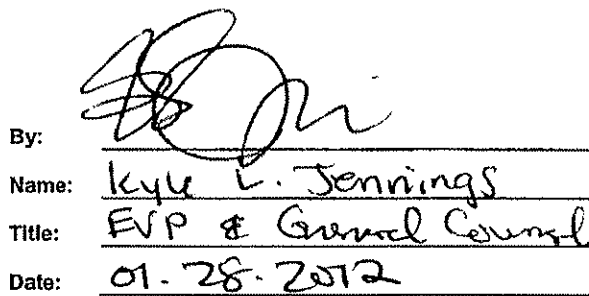 By:
Name: Kyle L. Jennings
Title: EVP & General Counsel
Date: 01.28.2012